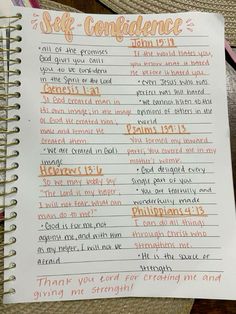 Self-Confidence
• all of the promises
God gives you calls
you to be confident
in the Spirit of God
Genesis 1:27
So God created man in
his own image, in the image
of God He created him;
male and female He
created them.
• We are created in God's
image
Hebrews 13:6
So we may boldly say
"The Lord is my helper,
I will not fear. What can
man do to me?"
• God is for me, not
against me, and with Him
as my helper, I will not be
afraid
John 15:18
If the world hates you,
you know that it hated
me before it hated you.
• even Jesus who was
perfect was still hated
• we cannot listen to the
opinions of others in the
world
Psalms 139:13
You formed my inward
parts; You covered me in my
mother's womb.
• God designed every
single part of you
• You are fearfully and
wonderfully made
Philippians 4:13
I can do all things
through Christ who
strengthens me.
• He is the source of
strength
Thank you Lord for creating me and
giving me strength!